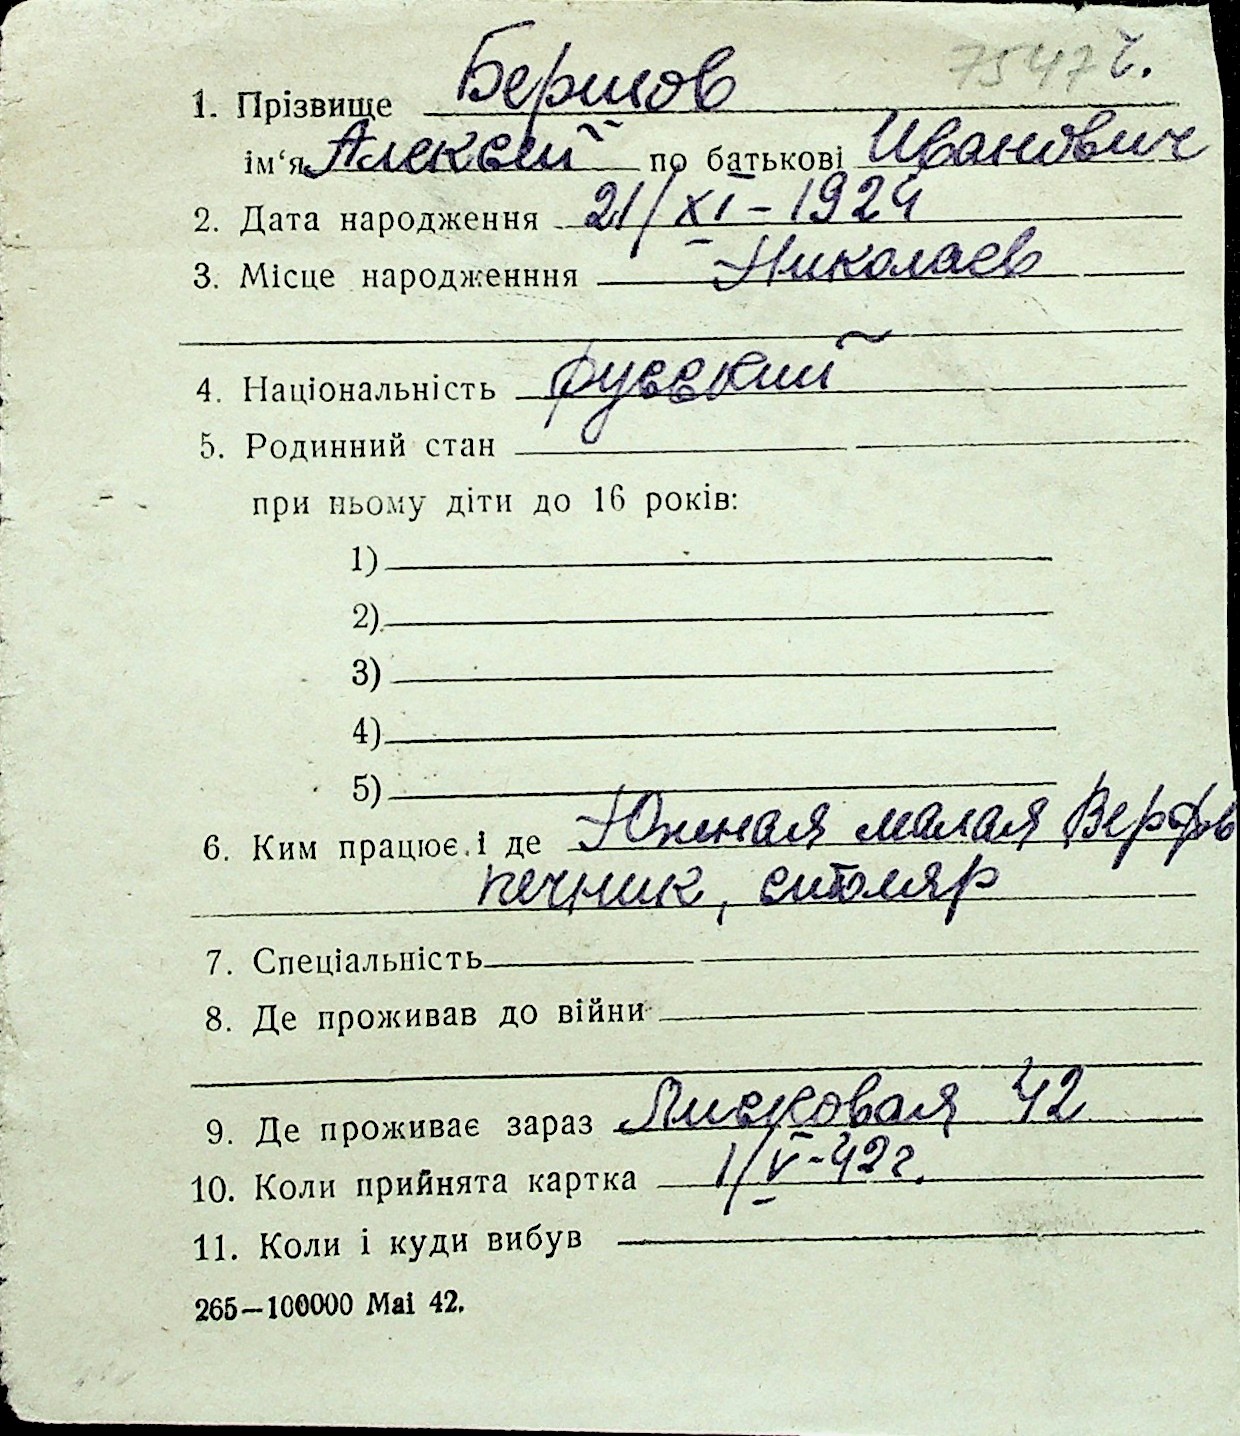 7547 г.
1. Прізвище Бершов
ім‘я Алексей по батькові Иванович
2. Дата народження 21/XI – 1924
3. Місце народженння Николаев
4. Національність русский
5. Родинний стан
при ньому діти до 16 років:
1)
2)
3)
4)
5)
6. Ким працює і де Южная малая Верфь
печник, столяр
7. Спеціальність
8. Де проживав до війни
9. Де проживає зараз Лисковая 42
10. Коли прийнята картка 1/V-42г.
11. Коли і куди вибув
265—100000 Mai 42.